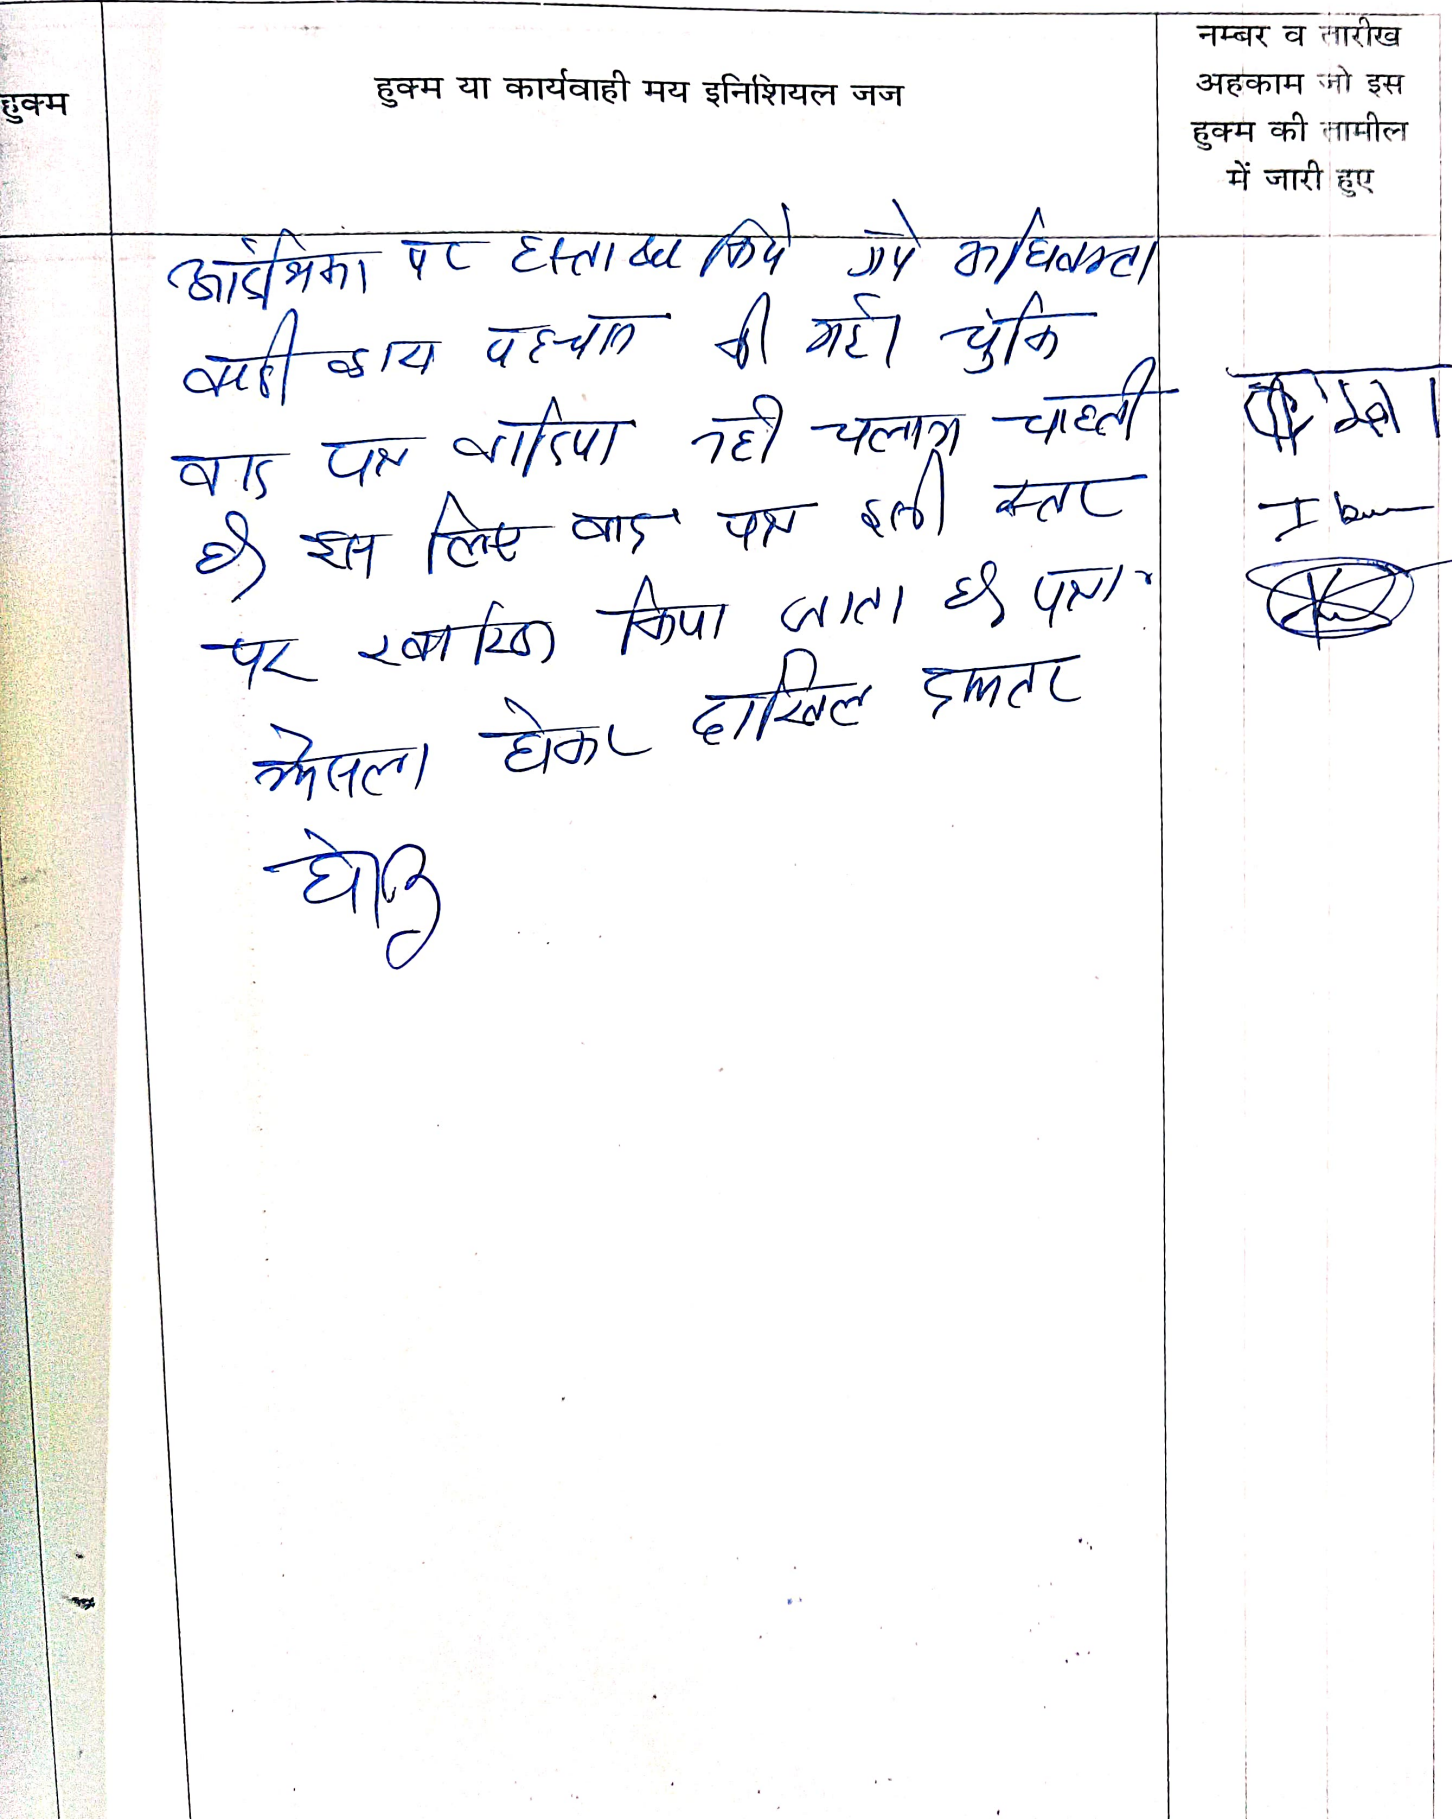 हुक्म
हुक्म या कार्यवाही मय इनिशियल जज
नम्बर व तारीख
अहकाम जो इस
हुक्म की तामील
में जारी हुए
पर हस्ताक्षर किये गये अधिवक्ता
पहचान की गई। चुंकि
वाद पत्र वादिया नही चलाना चाहती
है इस लिए वाद पत्र इसी स्तर
पर खारिज किया जाता है पत्रा
फैसला होकर दाखिल दफ्तर
हो।